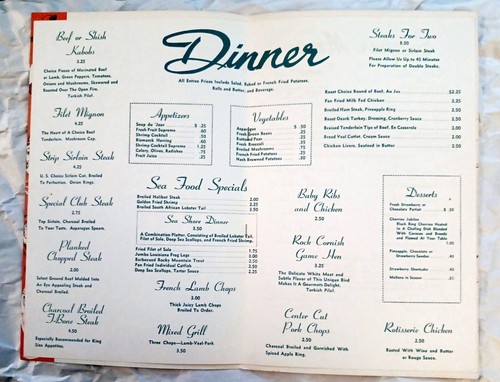 Dinner
All Entree Prices Include Salad, Baked or French Fried Potatoes,
Rolls and Butter, and Beverage.
Beef or Shish
Kabobs
3.25
Choice Pieces of Marinated Beef
or Lamb, Green Peppers, Tomatoes,
Onions and Mushrooms, Skewered and
Roasted Over The Open Fire.
Turkish Pilaf.
Filet Mignon
4.25
The Heart of A Choice Beef
Tenderloin. Mushroom Cap.
Strip Sirloin Steak
4.25
U. S. Choice Sirloin Cut, Broiled
To Perfection. Onion Rings.
Special Club Steak
3.25
Top Sirloin, Charcoal Broiled
To Your Taste. Asparagus Spears.
Planked
Chopped Steak
2.00
Select Ground Beef Molded Into
An Eye Appealing Steak and
Charcoal Broiled.
Charcoal Broiled
T-Bone Steak
4.50
Especially Recommended for King
Size Appetites.
Appetizers
Soup du Jour $ .25
Fresh Fruit Supreme .60
Shrimp Cocktail .50
Bismarck Herring .60
Shrimp Cocktail 1.00
Celery, Olives, Radishes .75
Fruit Juice .25
Vegetables
Asparagus $ .50
Fresh Green Beans .25
Buttered Peas .25
Fresh Broccoli .35
Broiled Mushrooms .75
French Fried Potatoes .25
Hash Browned Potatoes .30
Sea Food Specials
Broiled Halibut Steak 2.00
Golden Fried Shrimp 2.50
Broiled South African Lobster Tail 3.50
Sea Shore Dinner
3.50
A Combination Platter, Consisting of Broiled Lobster Tail,
Filet of Sole, Deep Sea Scallops, and French Fried Shrimp.
Fried Filet of Sole 1.75
Jumbo Louisiana Frog Legs 2.50
Barbecued Rocky Mountain Trout 2.50
Pan Fried Individual Catfish 2.50
Deep Sea Scallops, Tartar Sauce 2.25
French Lamb Chops
3.00
Thick Juicy Lamb Chops
Broiled To Order.
Mixed Grill
Three Chops—Lamb-Veal-Pork
3.50
Steaks For Two
8.50
Filet Mignon or Sirloin Steak
Please Allow Us Up to 45 Minutes
For Preparation of Double Steaks.
Roast Choice Round of Beef, Au Jus $2.25
Pan Fried Milk Fed Chicken 2.25
Broiled Ham Steak, Pineapple Ring 2.50
Roast Ozark Turkey, Dressing, Cranberry Sauce 2.50
Braised Tenderloin Tips of Beef, En Casserole 2.00
Bread Veal Cutlet, Cream Sauce 2.00
Chicken Livers, Sauteed in Butter 2.50
Baby Ribs
and Chicken
2.50
Rock Cornish
Game Hen
3.25
The Delicate White Meat and
Subtle Flavor of This Unique Bird
Makes It A Gourmets Delight.
Turkish Pilaf.
Center Cut
Pork Chops
2.50
Charcoal Broiled and Garnished With
Spiced Apple Ring.
Desserts
Fresh Strawberry or
Chocolate Parfait $ .50
Cherries Jubilee
Black Bing Cherries Heated
In A Chafing Dish Blended
With Cognac and Brandy
and Flamed At Your Table
1.00
Pineapple, Chocolate or
Strawberry Sundae .40
Strawberry Shortcake .45
Melons In Season .25
Rotisserie Chicken
2.50
Basted With Wine and Butter
or Rouge Sauce.